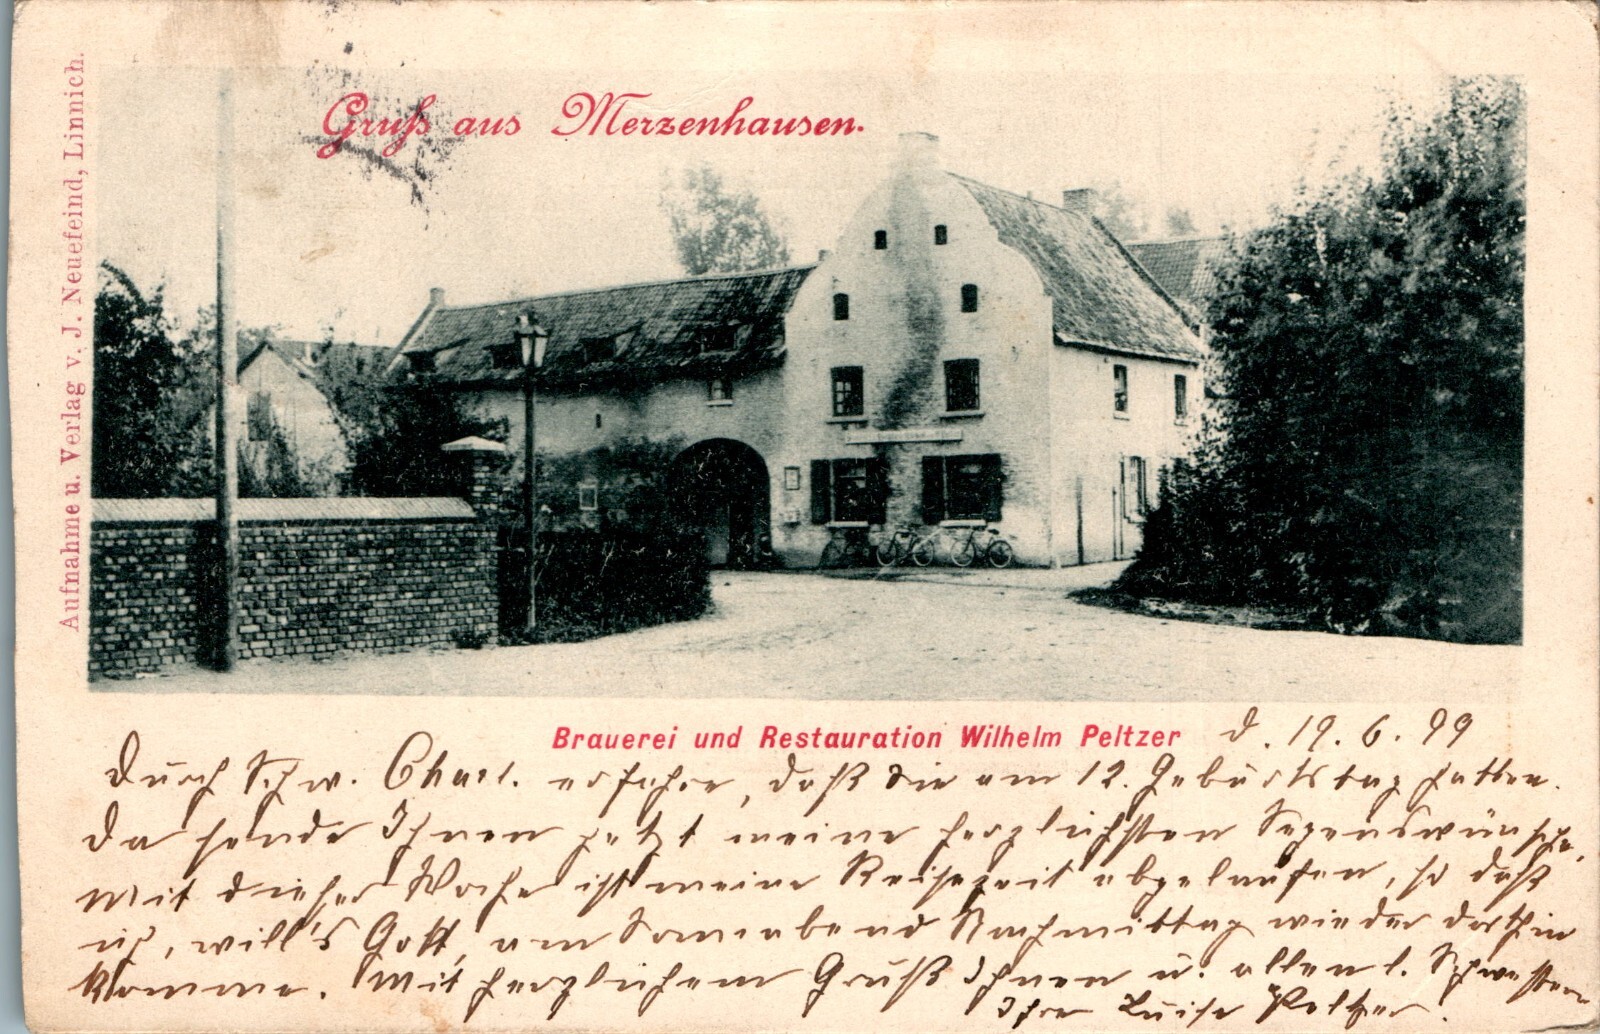 Gruß aus Merzenhausen.
Aufnahme u. Verlag v. J. Neuefeind, Linnich.
Brauerei und Restauration Wilhelm Peltzer
d. 19. 6. 99
Durch Schw. Charl. erfahre, daß Sie am 12. Geburtstag hatten.
Da sende Ihnen jetzt meine herzlichsten Segenswünsche.
Mit dieser Woche ist meine Reisezeit abgelaufen, so daß
ich, will's Gott, am Sonnabend Nachmittag wieder dorthin
komme. Mit herzlichem Gruß Ihnen u. allen l. Schwestern
Ihre Luise Peltzer.